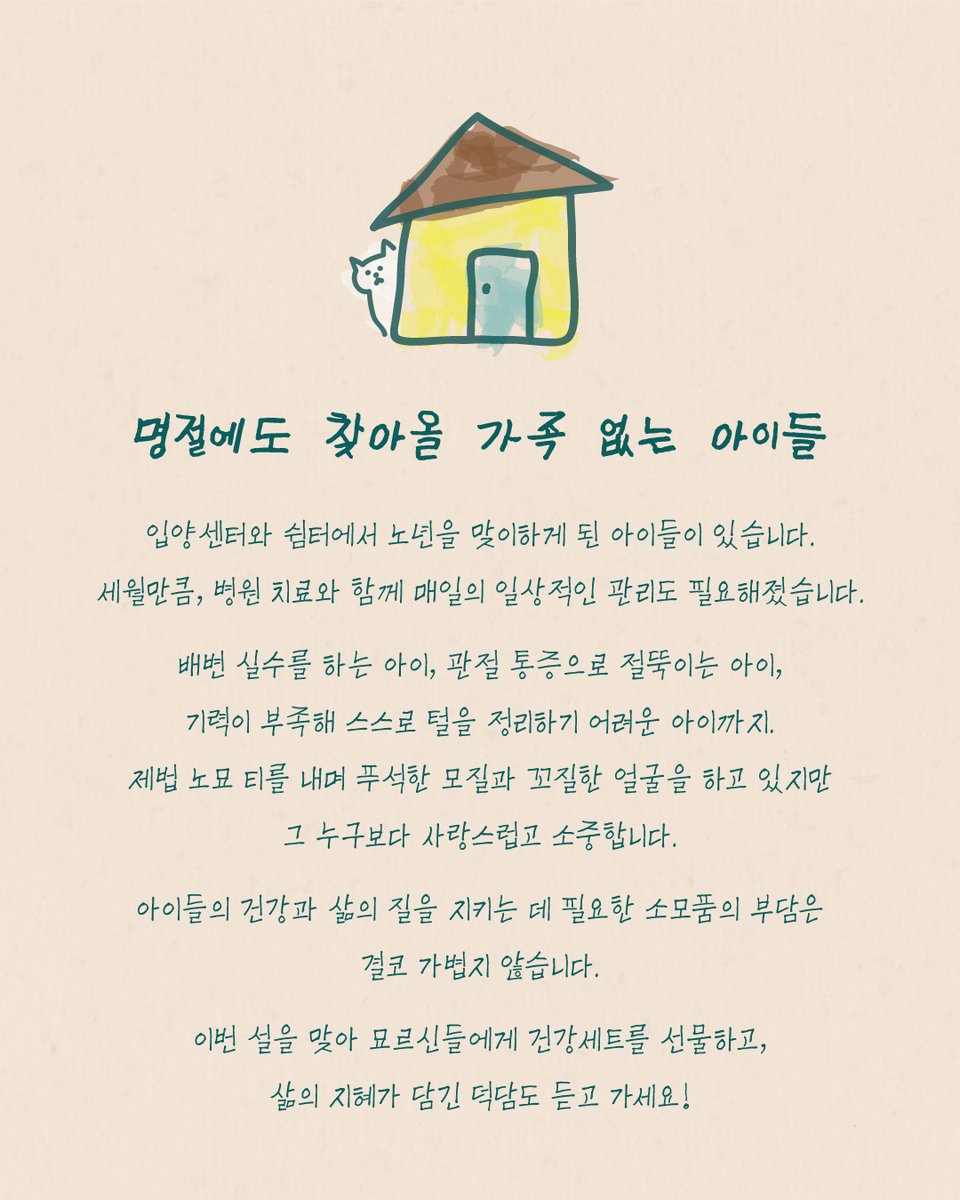 명절에도 찾아올 가족 없는 아이들
입양센터와 쉼터에서 노년을 맞이하게 된 아이들이 있습니다.
세월만큼, 병원 치료와 함께 매일의 일상적인 관리도 필요해졌습니다.
배변 실수를 하는 아이, 관절 통증으로 절뚝이는 아이,
기력이 부족해 스스로 털을 정리하기 어려운 아이까지.
제법 노묘 티를 내며 푸석한 모질과 꼬질한 얼굴을 하고 있지만
그 누구보다 사랑스럽고 소중합니다.
아이들의 건강과 삶의 질을 지키는 데 필요한 소모품의 부담은
결코 가볍지 않습니다.
이번 설을 맞아 묘르신들에게 건강세트를 선물하고,
삶의 지혜가 담긴 덕담도 듣고 가세요!